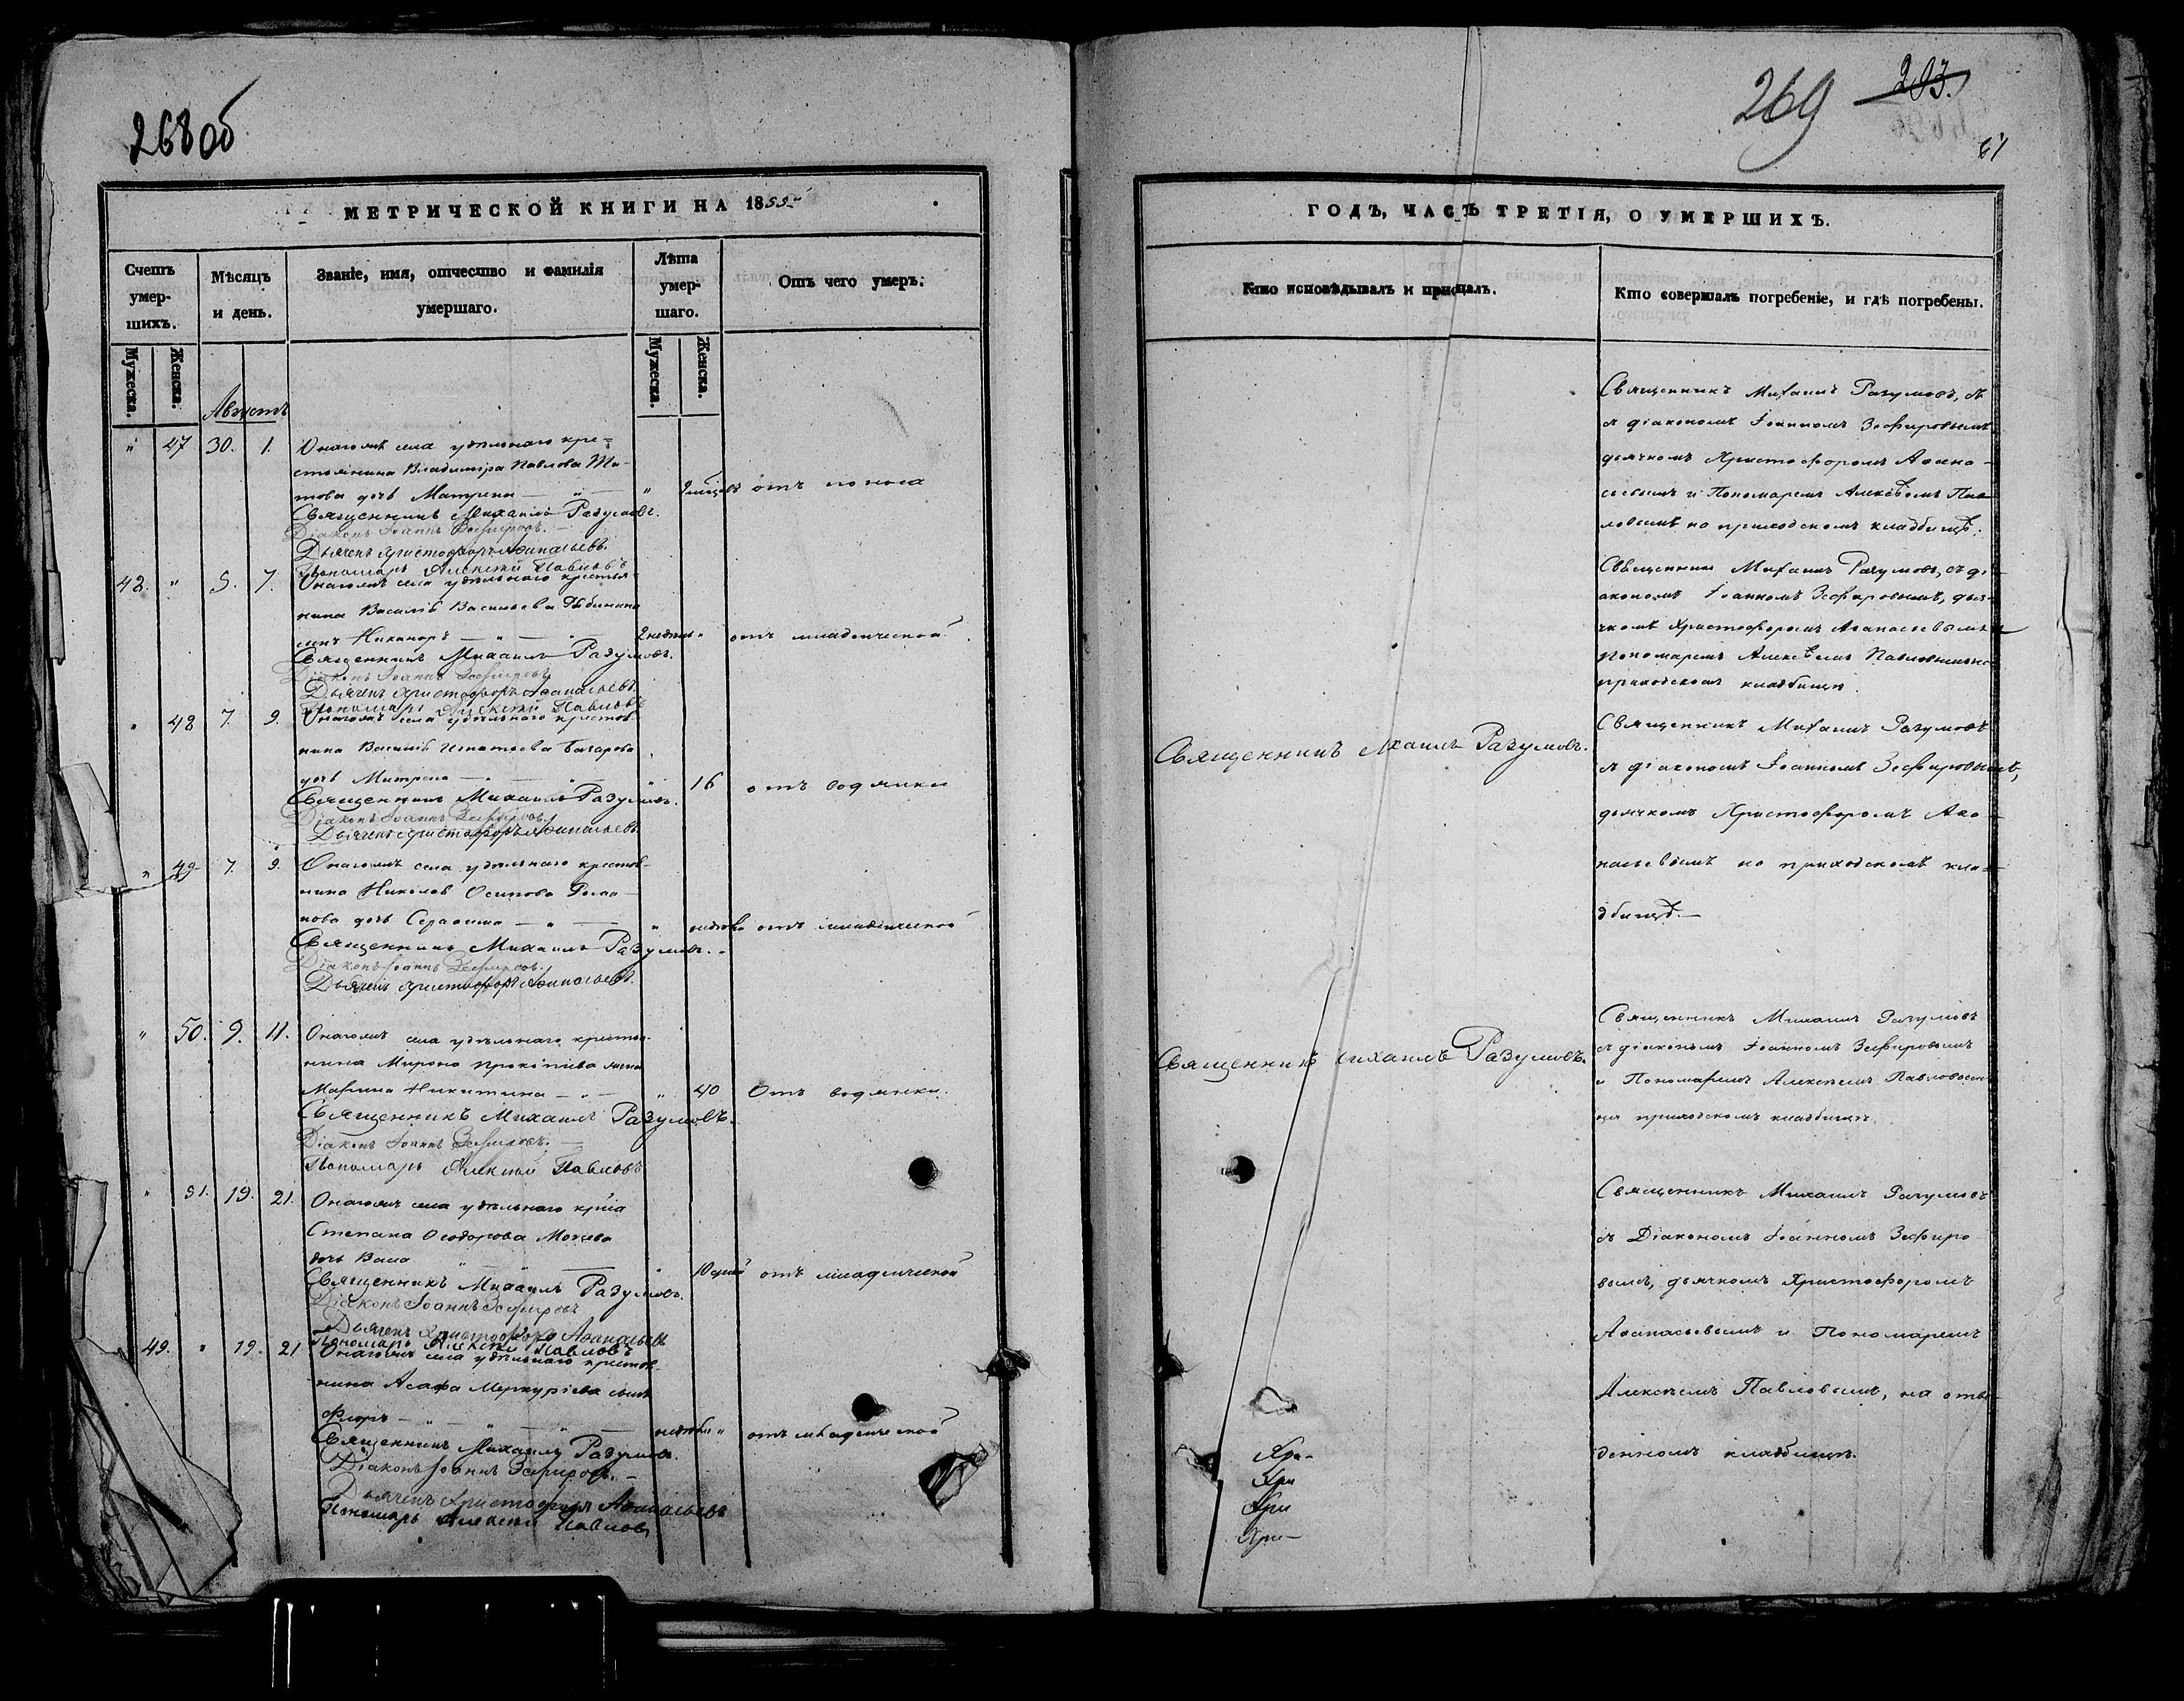 268об
МЕТРИЧЕСКОЙ КНИГИ НА 1855
Счетъ умершихъ.
Мѣсяцъ и день.
Званіе, имя, отчество и фамилія умершаго.
Лѣта умершаго.
Отъ чего умеръ.
Мужеска.
Женска.
Мужеска.
Женска.
Августъ
" 47 30. 1. Онагожъ села удѣльнаго кре-
стьянина Владиміра Павлова
дочь Матрена " отъ поноса
Священникъ Михаилъ Разумовъ.
Діаконъ Іоаннъ Зефировъ.
Дьячекъ Христофоръ Аѳанасьевъ.
Пономарь Алексѣй Павловъ
42. " 5. 7. Онагожъ села удѣльнаго крестья-
нина Василія Васильева
сынъ Никаноръ 2 недѣль " отъ младенческой
Священникъ Михаилъ Разумовъ.
Діаконъ Іоаннъ Зефировъ
Дьячекъ Христофоръ Аѳанасьевъ.
Пономарь Алексѣй Павловъ
" 48 7. 9. Онагожъ села удѣльнаго крестья-
нина Василія Игнатьева
дочь Матрена " 16 отъ водянки
Священникъ Михаилъ Разумовъ.
Діаконъ Іоаннъ Зефировъ.
Дьячекъ Христофоръ Аѳанасьевъ.
" 49 7. 9. Онагожъ села удѣльнаго крестья-
нина Николая Осипова Рома-
нова дочь " отъ младенческой
Священникъ Михаилъ Разумовъ.
Діаконъ Іоаннъ Зефировъ.
Дьячекъ Христофоръ Аѳанасьевъ.
" 50. 9. 11. Онагожъ села удѣльнаго крестья-
нина Мирона Прокопіева жена
Марина Никитина " 40 Отъ водянки.
Священникъ Михаилъ Разумовъ.
Діаконъ Іоаннъ Зефировъ.
Пономарь Алексѣй Павловъ
" 51. 19. 21. Онагожъ села удѣльнаго
Степана Ѳеодорова
дочь Васа " 10 дней отъ младенческой
Священникъ Михаилъ Разумовъ.
Діаконъ Іоаннъ Зефировъ
Дьячекъ Христофоръ Аѳанасьевъ
Пономарь Алексѣй Павловъ
49. " 19. 21 Онагожъ села удѣльнаго крестья-
нина Асафа Меркуріева сынъ
Флоръ " отъ младенческой
Священникъ Михаилъ Разумовъ.
Діаконъ Іоаннъ Зефировъ.
Дьячекъ Христофоръ Аѳанасьевъ
Пономарь Алексѣй Павловъ
269
203.
61
ГОДЪ, ЧАСТЬ ТРЕТІЯ, О УМЕРШИХЪ.
Кто исповѣдывалъ и пріобщалъ.
Кто совершалъ погребеніе, и гдѣ погребены.
Священникъ Михаилъ Разумовъ.
Священникъ Михаилъ Разумовъ.
Хри-
Хри
Хри
Хри-
Священникъ Михаилъ Разумовъ,
съ діакономъ Іоанномъ Зефировымъ
дьячкомъ Христофоромъ Аѳана-
сьевымъ и Пономаремъ Алексѣемъ Пав-
ловымъ на приходскомъ кладбищѣ.
Священникъ Михаилъ Разумовъ, съ ді-
акономъ Іоанномъ Зефировымъ, дья-
чкомъ Христофоромъ Аѳанасьевымъ и
Пономаремъ Алексѣемъ Павловымъ на
приходскомъ кладбищѣ.
Священникъ Михаилъ Разумовъ
съ діакономъ Іоанномъ Зефировымъ,
дьячкомъ Христофоромъ Аѳа-
насьевымъ на приходскомъ кла-
дбищѣ.
Священникъ Михаилъ Разумовъ
съ діакономъ Іоанномъ Зефировымъ
и Пономаремъ Алексѣемъ Павловымъ
на приходскомъ кладбищѣ.
Священникъ Михаилъ Разумовъ
съ Діакономъ Іоанномъ Зефиро-
вымъ, дьячкомъ Христофоромъ
Аѳанасьевымъ и Пономаремъ
Алексѣемъ Павловымъ, на отве-
денномъ кладбищѣ.